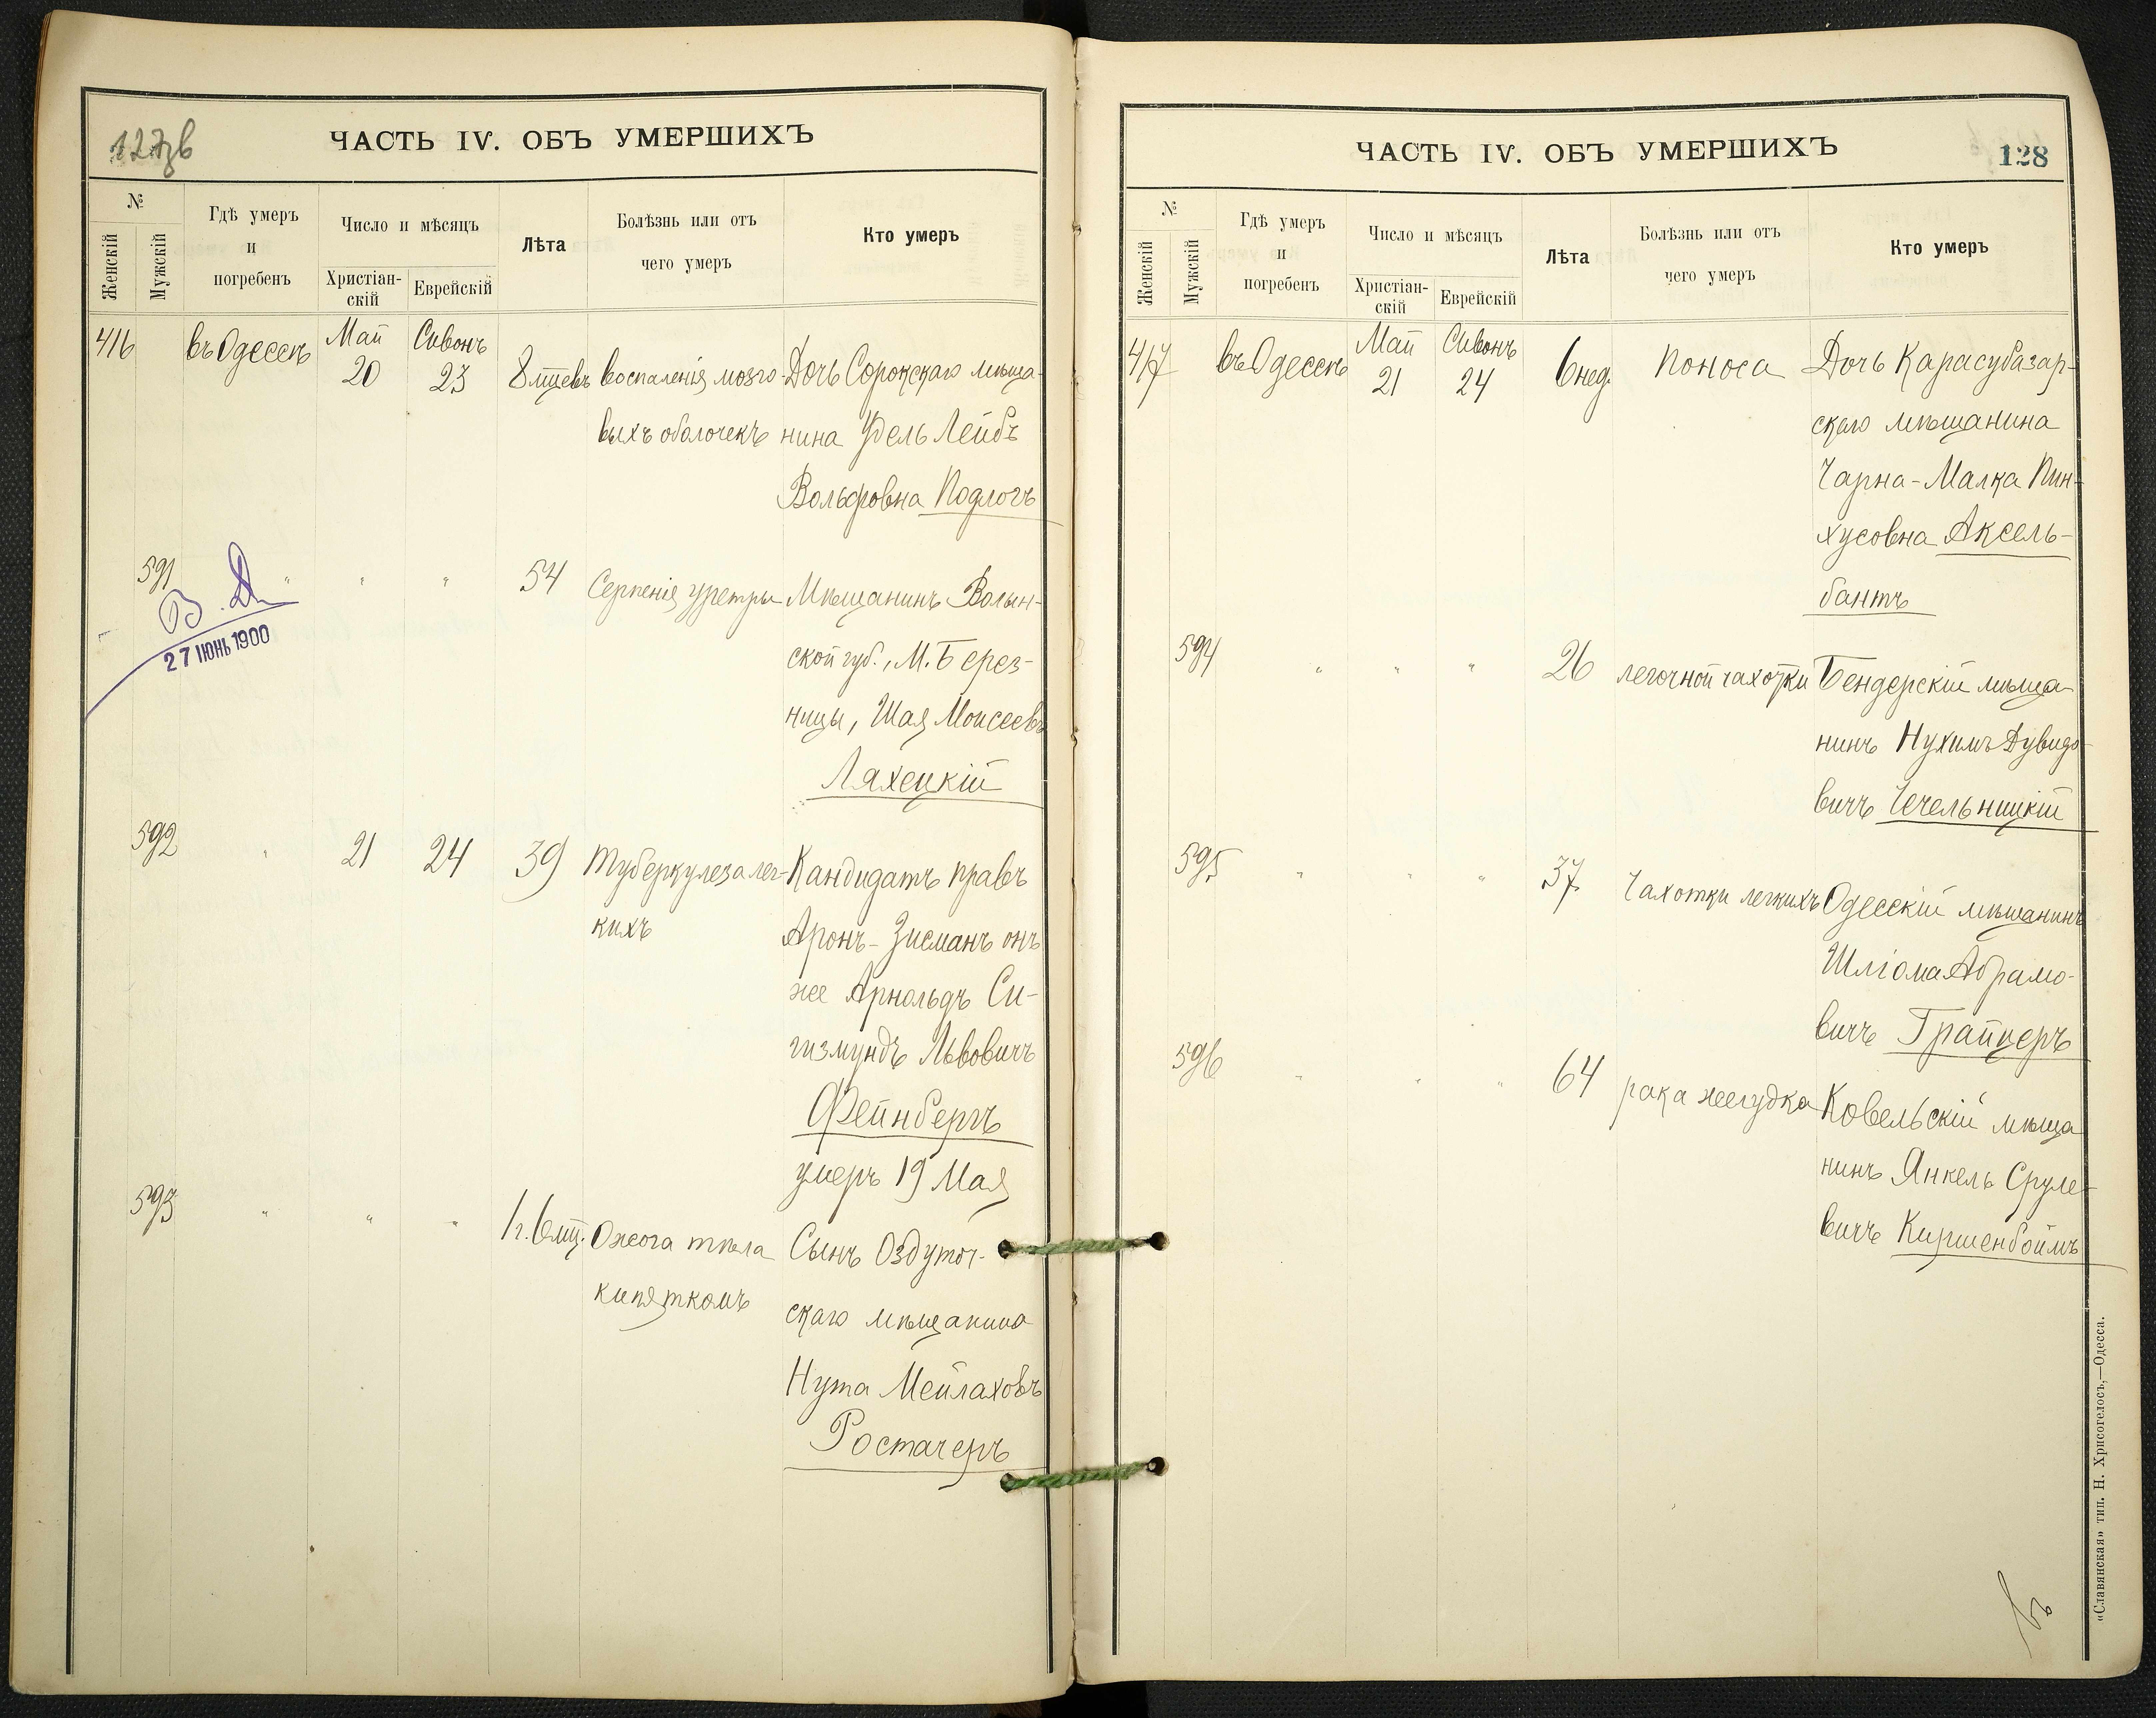 127 об
ЧАСТЬ IV. ОБЪ УМЕРШИХЪ
№
Женскій
Мужскій
Гдѣ умеръ
и
погребенъ
Число и мѣсяцъ
Христіан-
скій
Еврейскій
Лѣта
Болѣзнь или отъ
чего умеръ
Кто умеръ
416 въ Одессѣ Май 20 Сивонъ 23 8 мцевъ воспаленія мозго- Дочь Сорокскаго мѣща-
выхъ оболочекъ нина Удель Лейбъ
Вольфовна Подлогъ
591 " " " 54 уретры Мѣщанинъ Волын-
ской губ., М. Берез-
ницы, Шая Моисеевъ
Ляхецкій
27 ІЮНЬ 1900
592 " 21 24 39 Туберкулеза лег- Кандидатъ правъ
кихъ Аронъ-Зисманъ онъ
же Арнольдъ Си-
гизмундъ Львовичъ
Фейнбергъ
умеръ 19 Мая
593 " " " 1 г. 6 мц. Ожога тѣла Сынъ
кипяткомъ скаго мѣщанина
Нута Мейлаховъ
Ростачеръ
ЧАСТЬ IV. ОБЪ УМЕРШИХЪ
128
№
Женскій
Мужскій
Гдѣ умеръ
и
погребенъ
Число и мѣсяцъ
Христіан-
скій
Еврейскій
Лѣта
Болѣзнь или отъ
чего умеръ
Кто умеръ
417 въ Одессѣ Май 21 Сивонъ 24 6 нед. поноса Дочь Карасубазар-
скаго мѣщанина
Чарна-Малка Пин-
хусовна Аксель-
бантъ
594 " " " 26 легочной чахотки Бендерскій мѣща-
нинъ Нухимъ Дувидо-
вичъ Чечельницкій
595 " " " 37 Чахотки легкихъ Одесскій мѣщанинъ
Шліома Абрамо-
вичъ Грайцеръ
596 " " " 64 рака желудка Ковельскій мѣща
нинъ Янкель Сруле-
вичъ Киршенбоймъ
«Славянская» тип. Н. Хрисогелосъ,—Одесса.